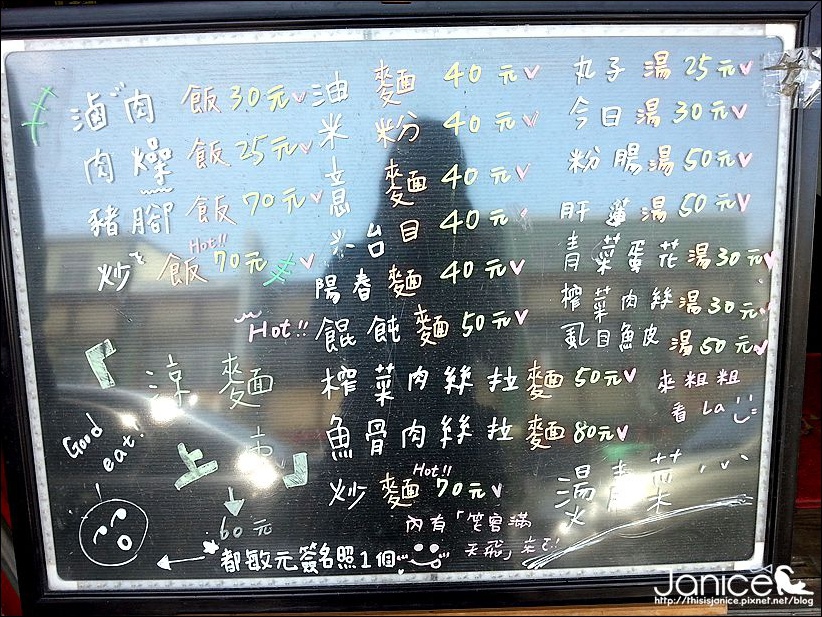 滷肉飯30元
肉燥飯25元
豬腳飯70元
Hot!!
炒飯70元
油麵40元
米粉40元
意麵40元
米台目40元
陽春麵40元
Hot!!
餛飩麵50元
榨菜肉絲拉麵50元
魚骨肉絲拉麵80元
Hot!!
炒麵70元
丸子湯25元
今日湯30元
粉腸湯50元
肝蓮湯50元
青菜蛋花湯30元
榨菜肉絲湯30元
虱目魚皮湯50元
來粗粗
看La
『涼麵
上市』
60元
Good
eat.
湯青菜
內有「笑容滿
天飛」
都敏元簽名照1個
Janice
http://thisisjanice.pixnet.net/blog